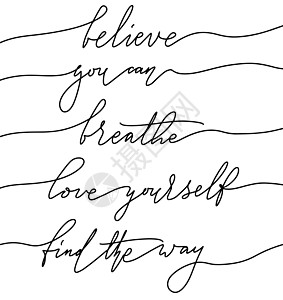 believe
you can
breathe
love yourself
find the way